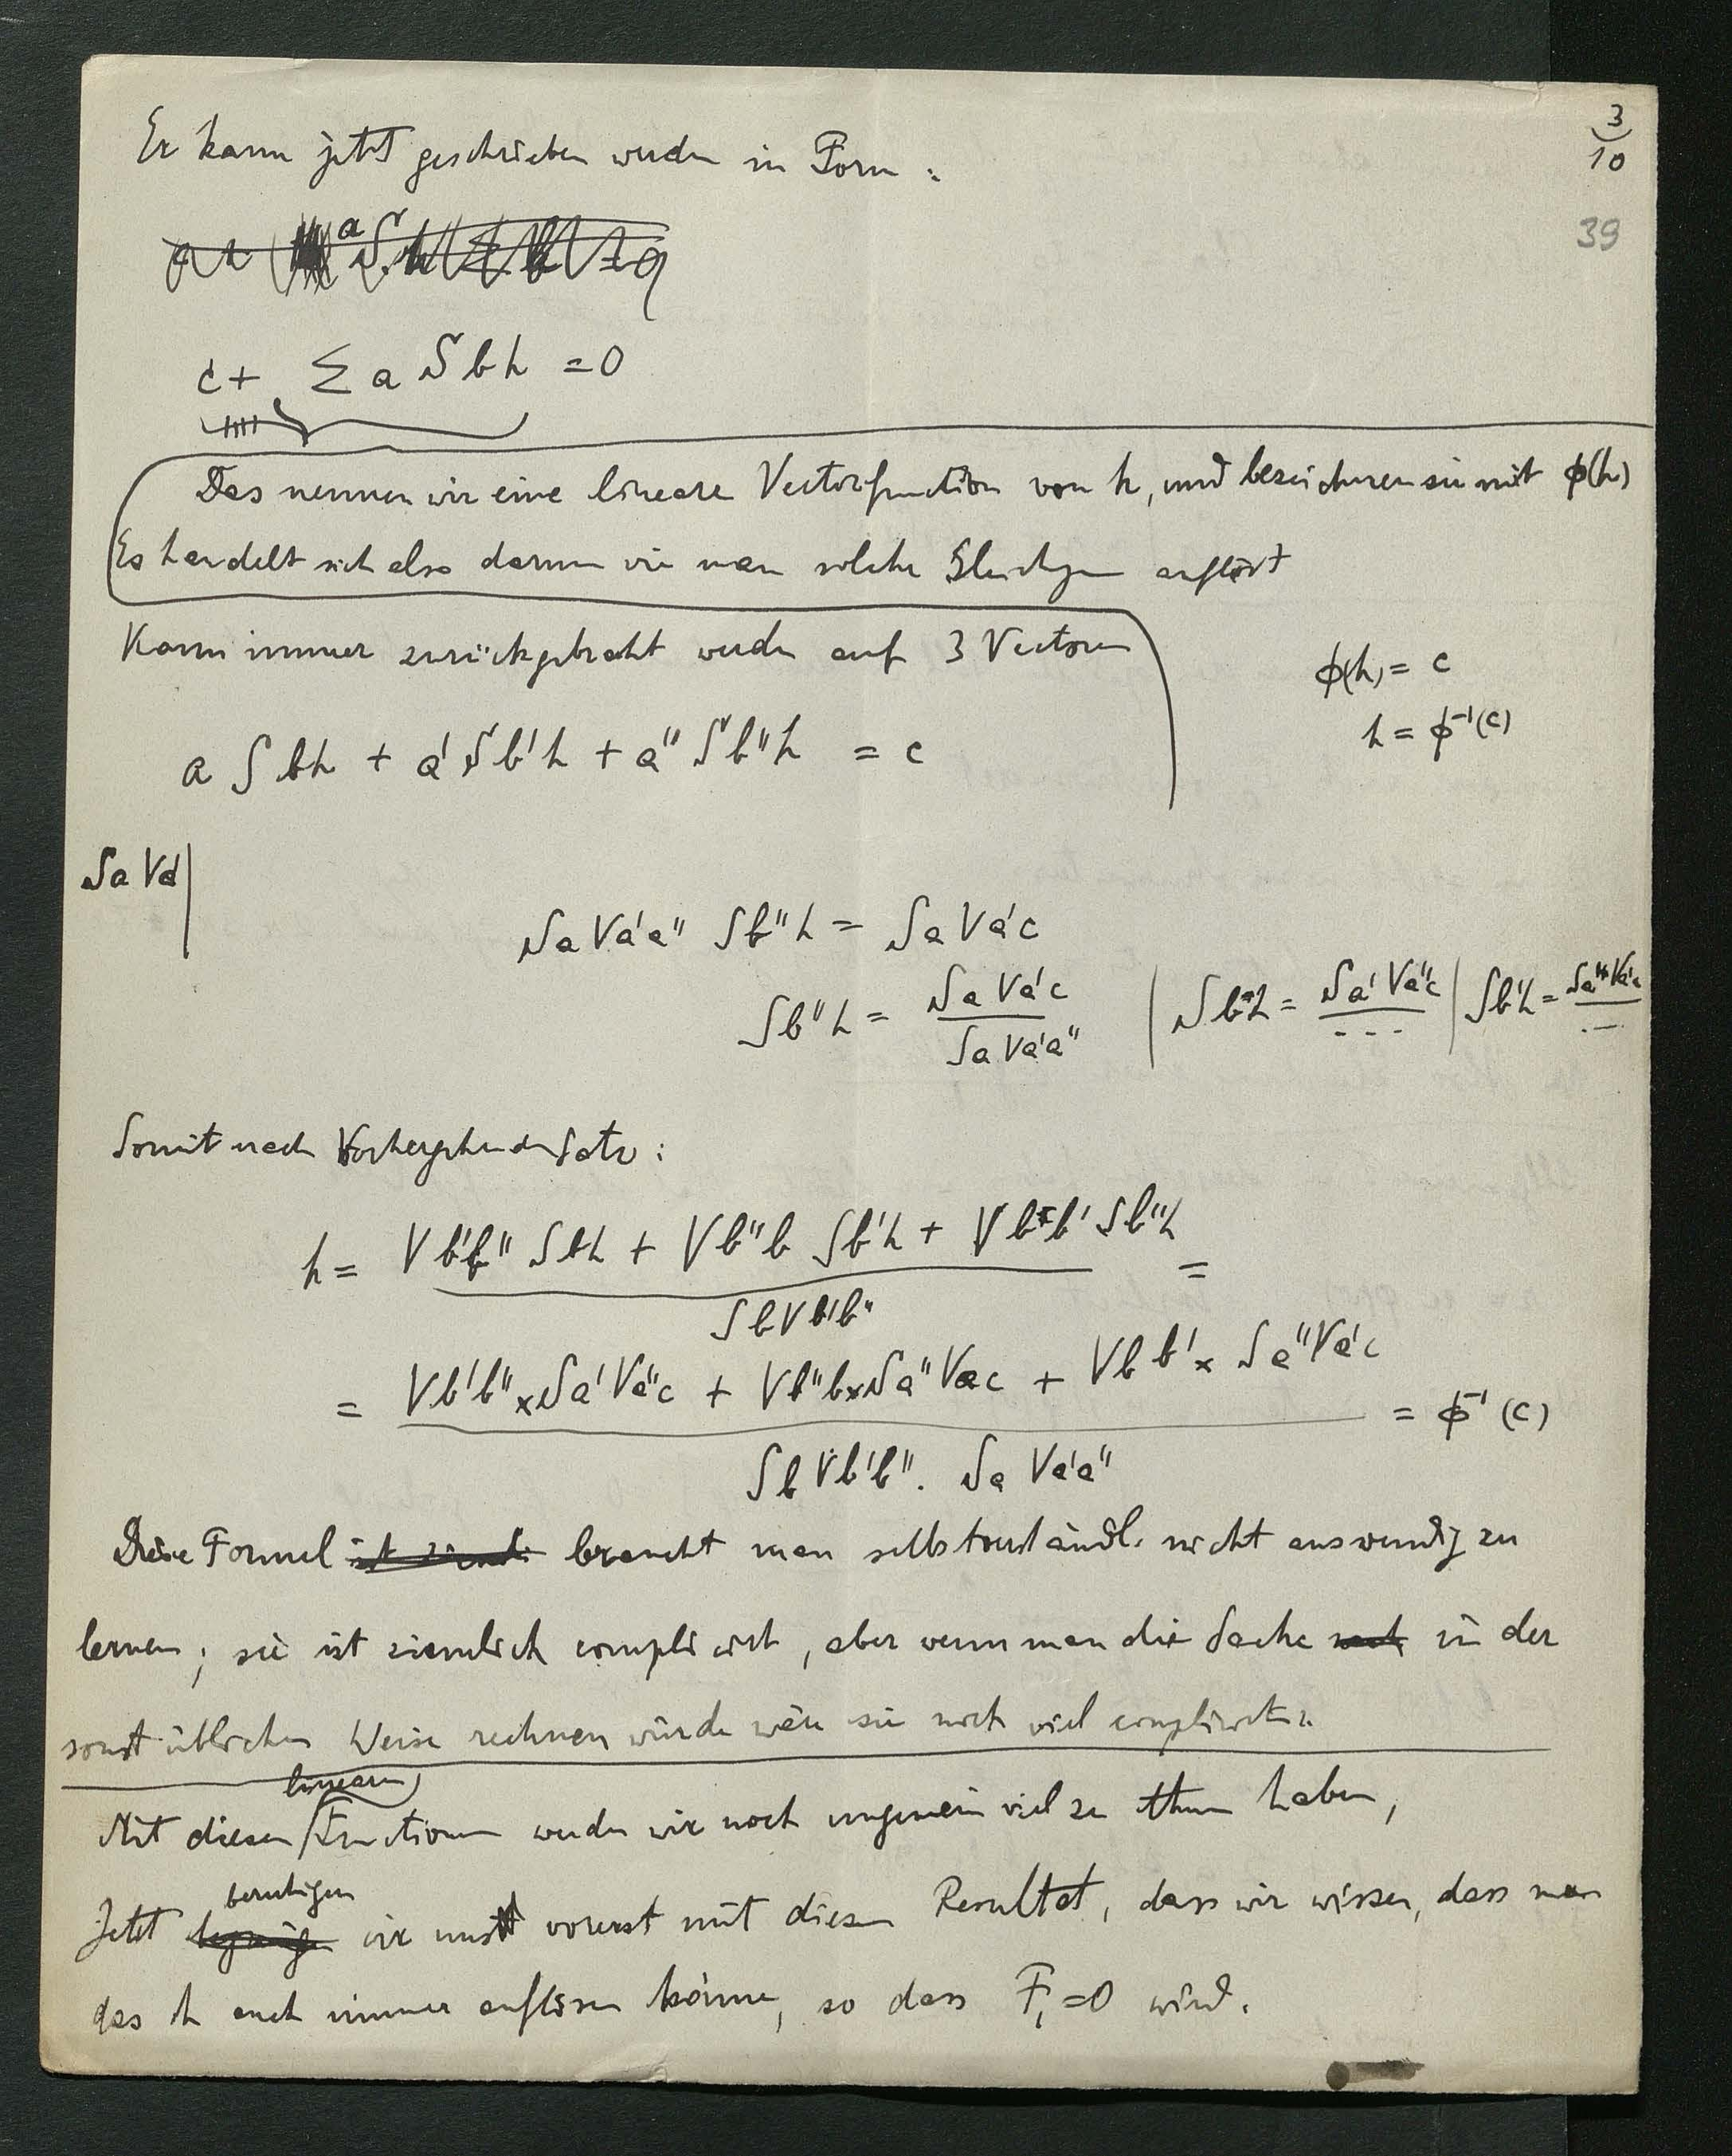 3
10
39
Er kann jetzt geschrieben werden in Form:
c + Σ a S b h = 0
Das nennen wir eine lineare Vectorfunction von h, und bezeichnen sie mit ϕ(h)
Es handelt sich also darum wie man solche Gleichgen auflöst
Kann immer zurückgebracht werden auf 3 Vectoren
ϕ(h) = c
h = ϕ⁻¹(c)
a S b h + a' S b' h + a'' S b'' h = c
S a V a'
S a V a' a'' S b'' h = S a V a' c
S b'' h = S a V a' c / S a V a' a'' | S b h = S a' V a'' c / --- | S b' h = S a'' V a c / ---
Somit nach Vorhergehendem Satz:
h = V b' b'' S b h + V b'' b S b' h + V b b' S b'' h / S b V b' b'' =
= V b' b'' × S a' V a'' c + V b'' b × S a'' V a c + V b b' × S a'' V a' c / S b V b' b'' . S a V a' a'' = ϕ⁻¹(c)
Diese Formel ist ziemli braucht man selbstverständl. nicht auswendig zu
lernen; sie ist ziemlich complicirt, aber wenn man die Sache nach in der
sonst üblichen Weise rechnen würde wäre sie noch viel complicirter.
Mit diesen linearen Functionen werden wir noch ungemein viel zu thun haben,
Jetzt begnügen beruhigen wir uns vorerst mit diesem Resultat, dass wir wissen, dass man
das h auch immer auflösen könne, so dass F₁=0 wird.